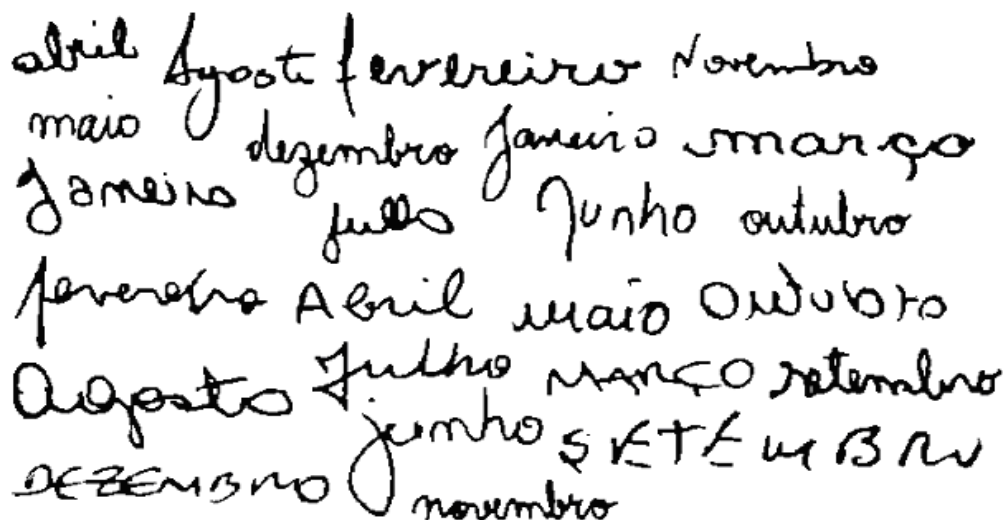 abril Agosto fevereiro Novembro
maio dezembro Janeiro março
Janeiro julho Junho outubro
fevereiro Abril maio Outubro
Agosto Julho MARÇO setembro
junho SETEMBRO
DEZEMBRO novembro